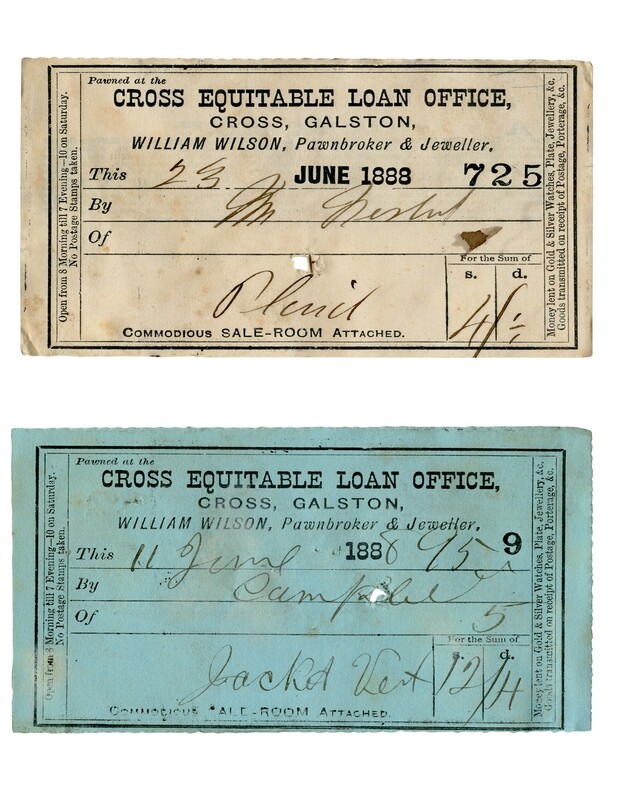 Pawned at the
CROSS EQUITABLE LOAN OFFICE,
CROSS, GALSTON,
WILLIAM WILSON, Pawnbroker & Jeweller.
This 23 JUNE 1888 725
By
Of
For the Sum of
s. d.
4/-
COMMODIOUS SALE-ROOM ATTACHED.
Open from 8 Morning till 7 Evening—10 on Saturday.
No Postage Stamps taken.
Money lent on Gold & Silver Watches, Plate, Jewellery, &c.
Goods transmitted on receipt of Postage, Porterage, &c.
Pawned at the
CROSS EQUITABLE LOAN OFFICE,
CROSS, GALSTON,
WILLIAM WILSON, Pawnbroker & Jeweller,
This 11 June 1888 95 9
By Campbell
Of 5
For the Sum of
s. d.
Jackd Vest 12/4
COMMODIOUS SALE-ROOM ATTACHED.
Open from 8 Morning till 7 Evening—10 on Saturday.
No Postage Stamps taken.
Money lent on Gold & Silver Watches, Plate, Jewellery, &c.
Goods transmitted on receipt of Postage, Porterage, &c.